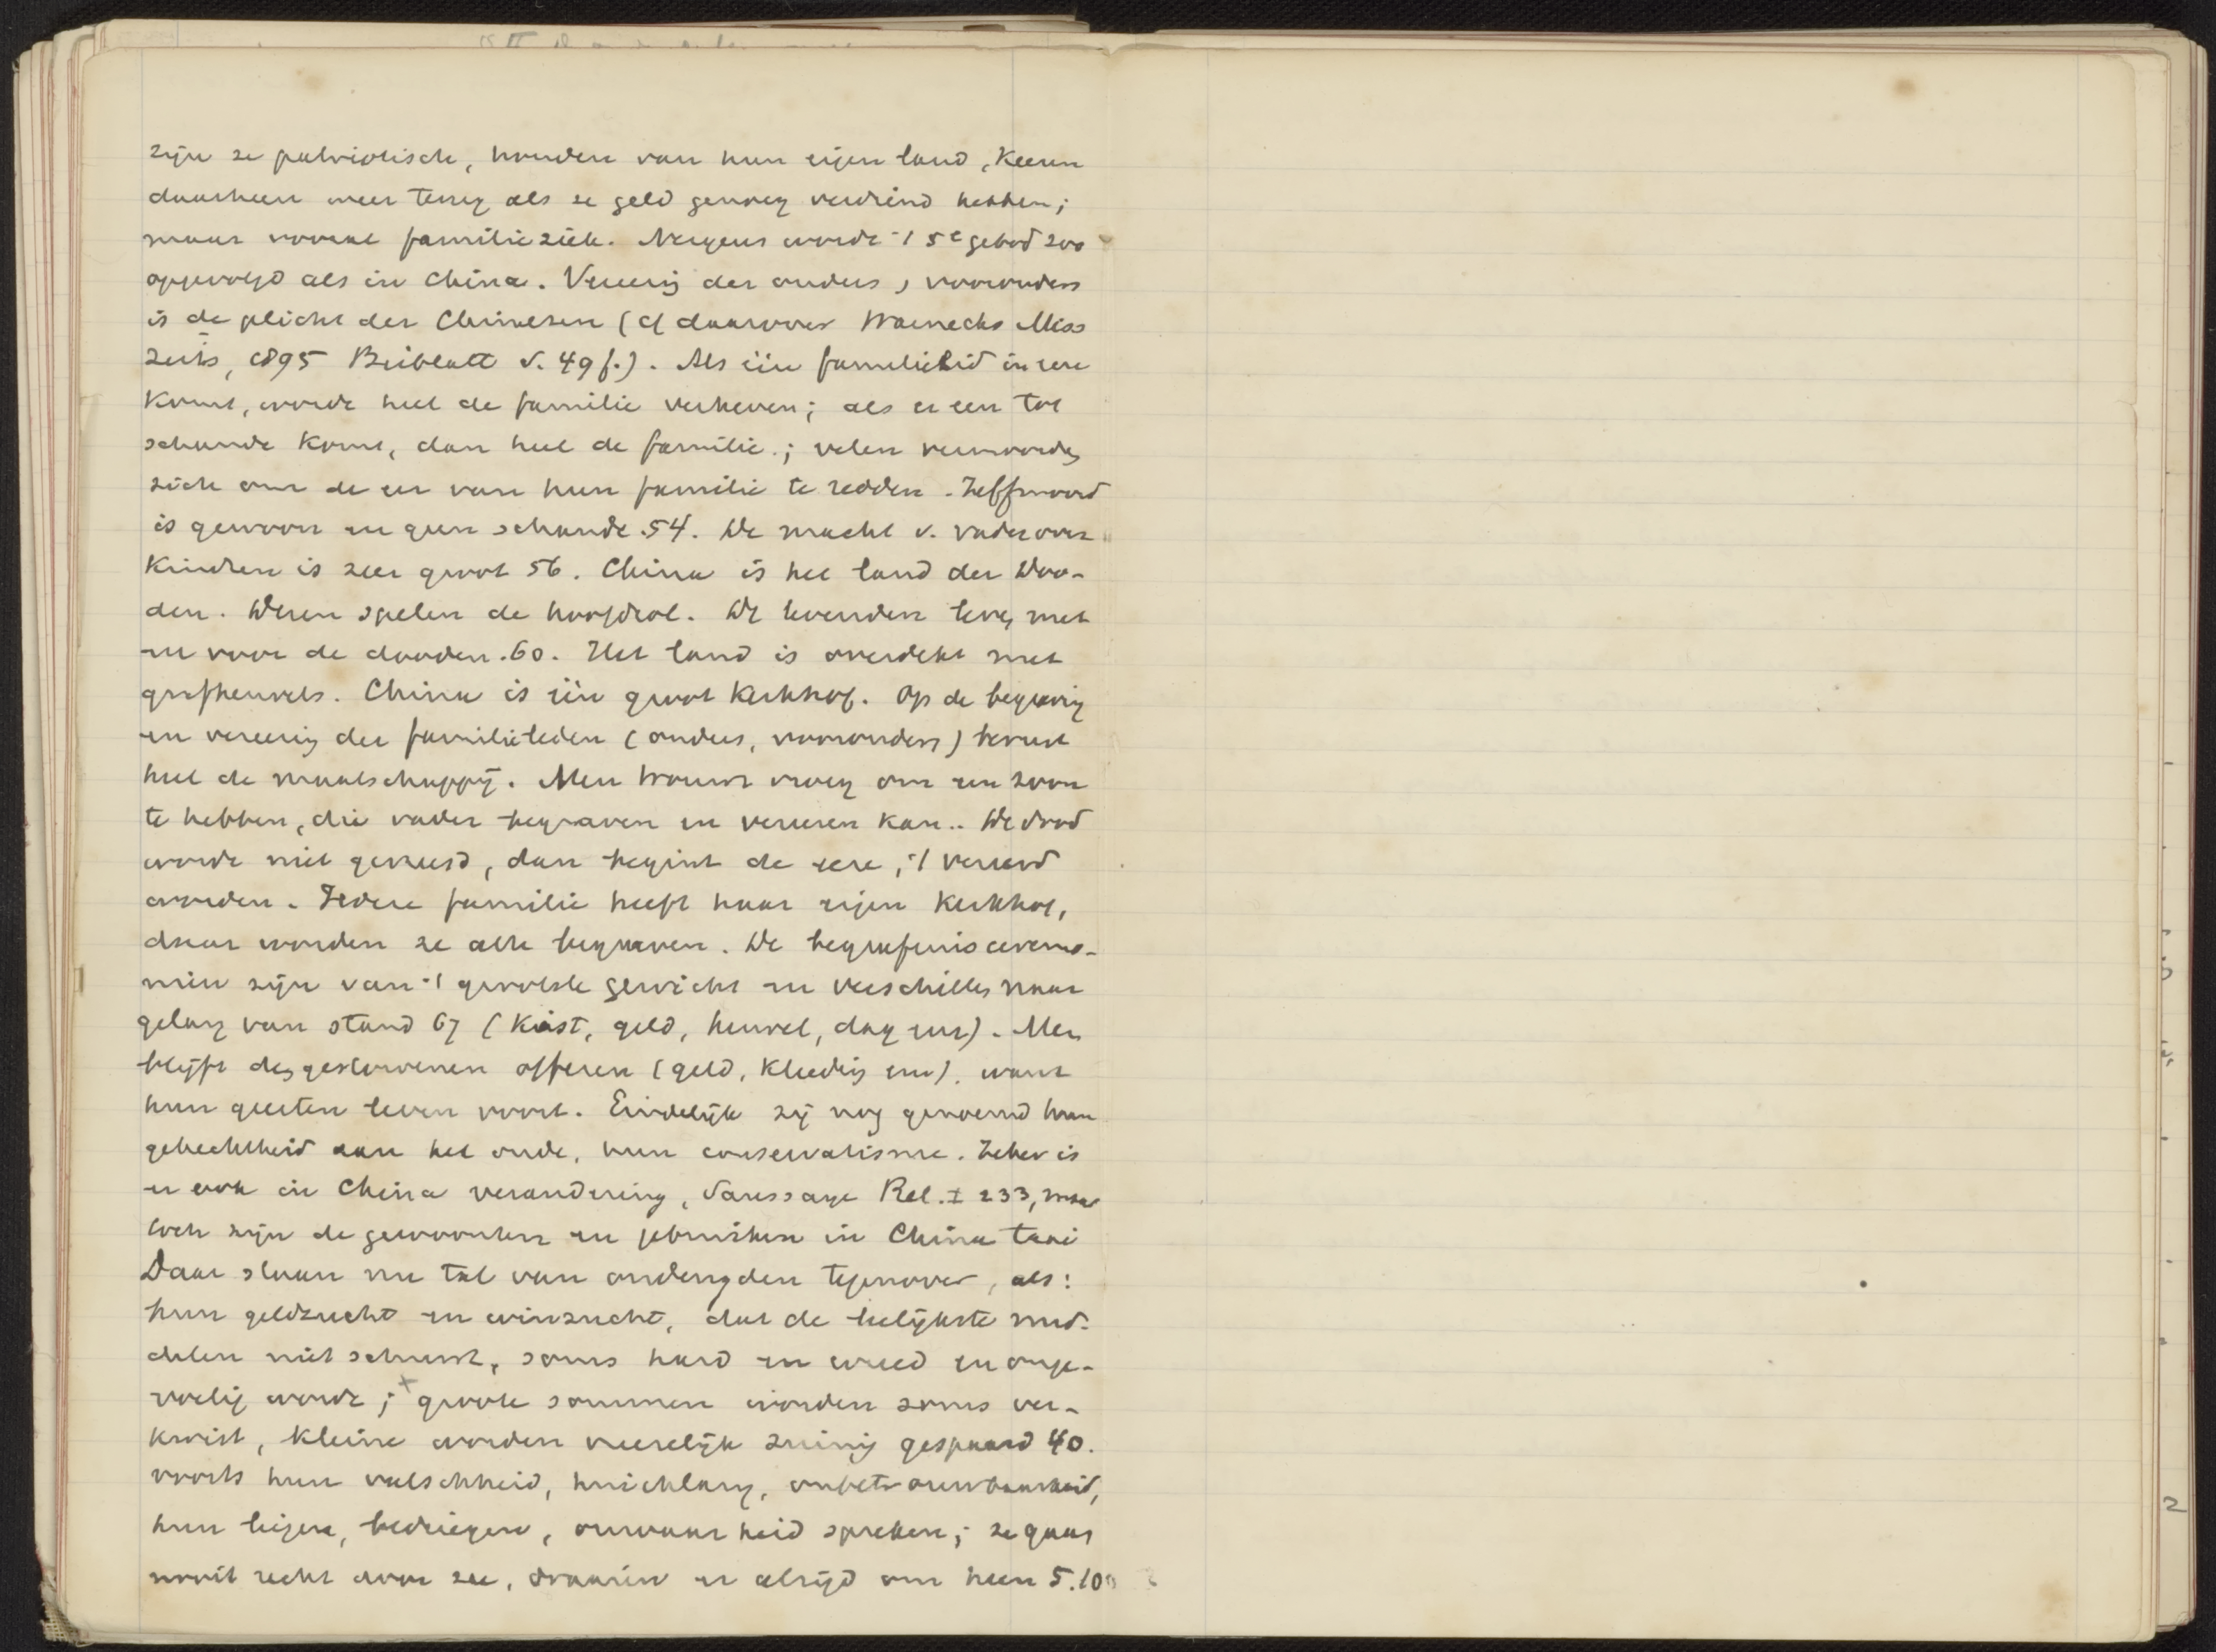 zijn ze patriotisch, houden van hun eigen land, keeren
daarheen weer terug als ze geld genoeg verdiend hebben;
maar vooral familieziek. Nergens wordt 't 5e gebod zoo
opgevolgd als in China. Vereerig der ouders, voorouders
is de plicht der Chineezen (cf daarover Warnecks Miss
Zeits, 1895 Beiblatt S. 49 f.). Als één familielid in eere
komt, wordt heel de familie verheven; als er een tot
schande komt, dan heel de familie; velen vermoorden
zich om de eer van hun familie te redden. Zelfmoord
is gewoon en geen schande 54. De macht v. vader over
kinderen is zeer groot 56. China is het land der Doo-
den. Dezen spelen de hoofdrol. De levenden leven met
en voor de dooden. 60. Het land is overdekt met
grafheuvels. China is één groot kerkhof. Op de begravig
en vereerig der familieleden (ouders, voorouders) berust
heel de maatschappij. Men trouwt vroeg om een zoon
te hebben, die vader begraven en vereeren kan.. De dood
wordt niet gevreesd, dan begint de eere, 't vereerd
worden. Iedere familie heeft haar eigen kerkhof,
daar worden ze alle begraven. De begrafenis ceremo-
niën zijn van 't grootste gewicht en verschillen naar
gelang van stand 67 (kist, geld, heuvel, dag enz). Men
blijft den gestorvenen offeren (geld, kleedig enz). want
hun geesten leven voort. Eindelijk zij nog genoemd hun
gehechtheid aan het oude, hun conservatisme. Zeker is
er ook in China verandering, Saussaye Rel. I 233, maar
toch zijn de gewoonten en gebruiken in China taai
Daar staan nu tal van ondeugden tegenover, als:
hun geldzucht en winzucht, dat de leelijkste mid-
delen niet schuwt, soms hard en wreed en onge-
voelig wordt; x groote sommen worden soms ver-
kwist, kleine worden vreeselijk zuinig gespaard 40.
voorts hun valschheid, huichlarij, onbetrouwbaarheid,
hun liegen, bedriegen, onwaarheid spreken; ze gaan
nooit recht door zee, draaien er altijd om heen 5.10
2